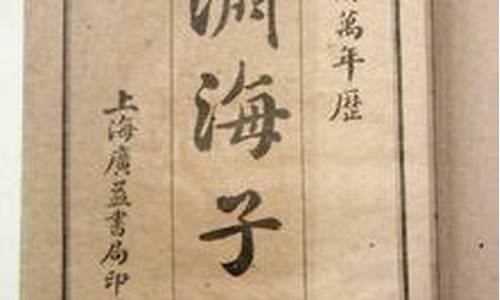 萬年歷
淵海子
上海廣益書局印